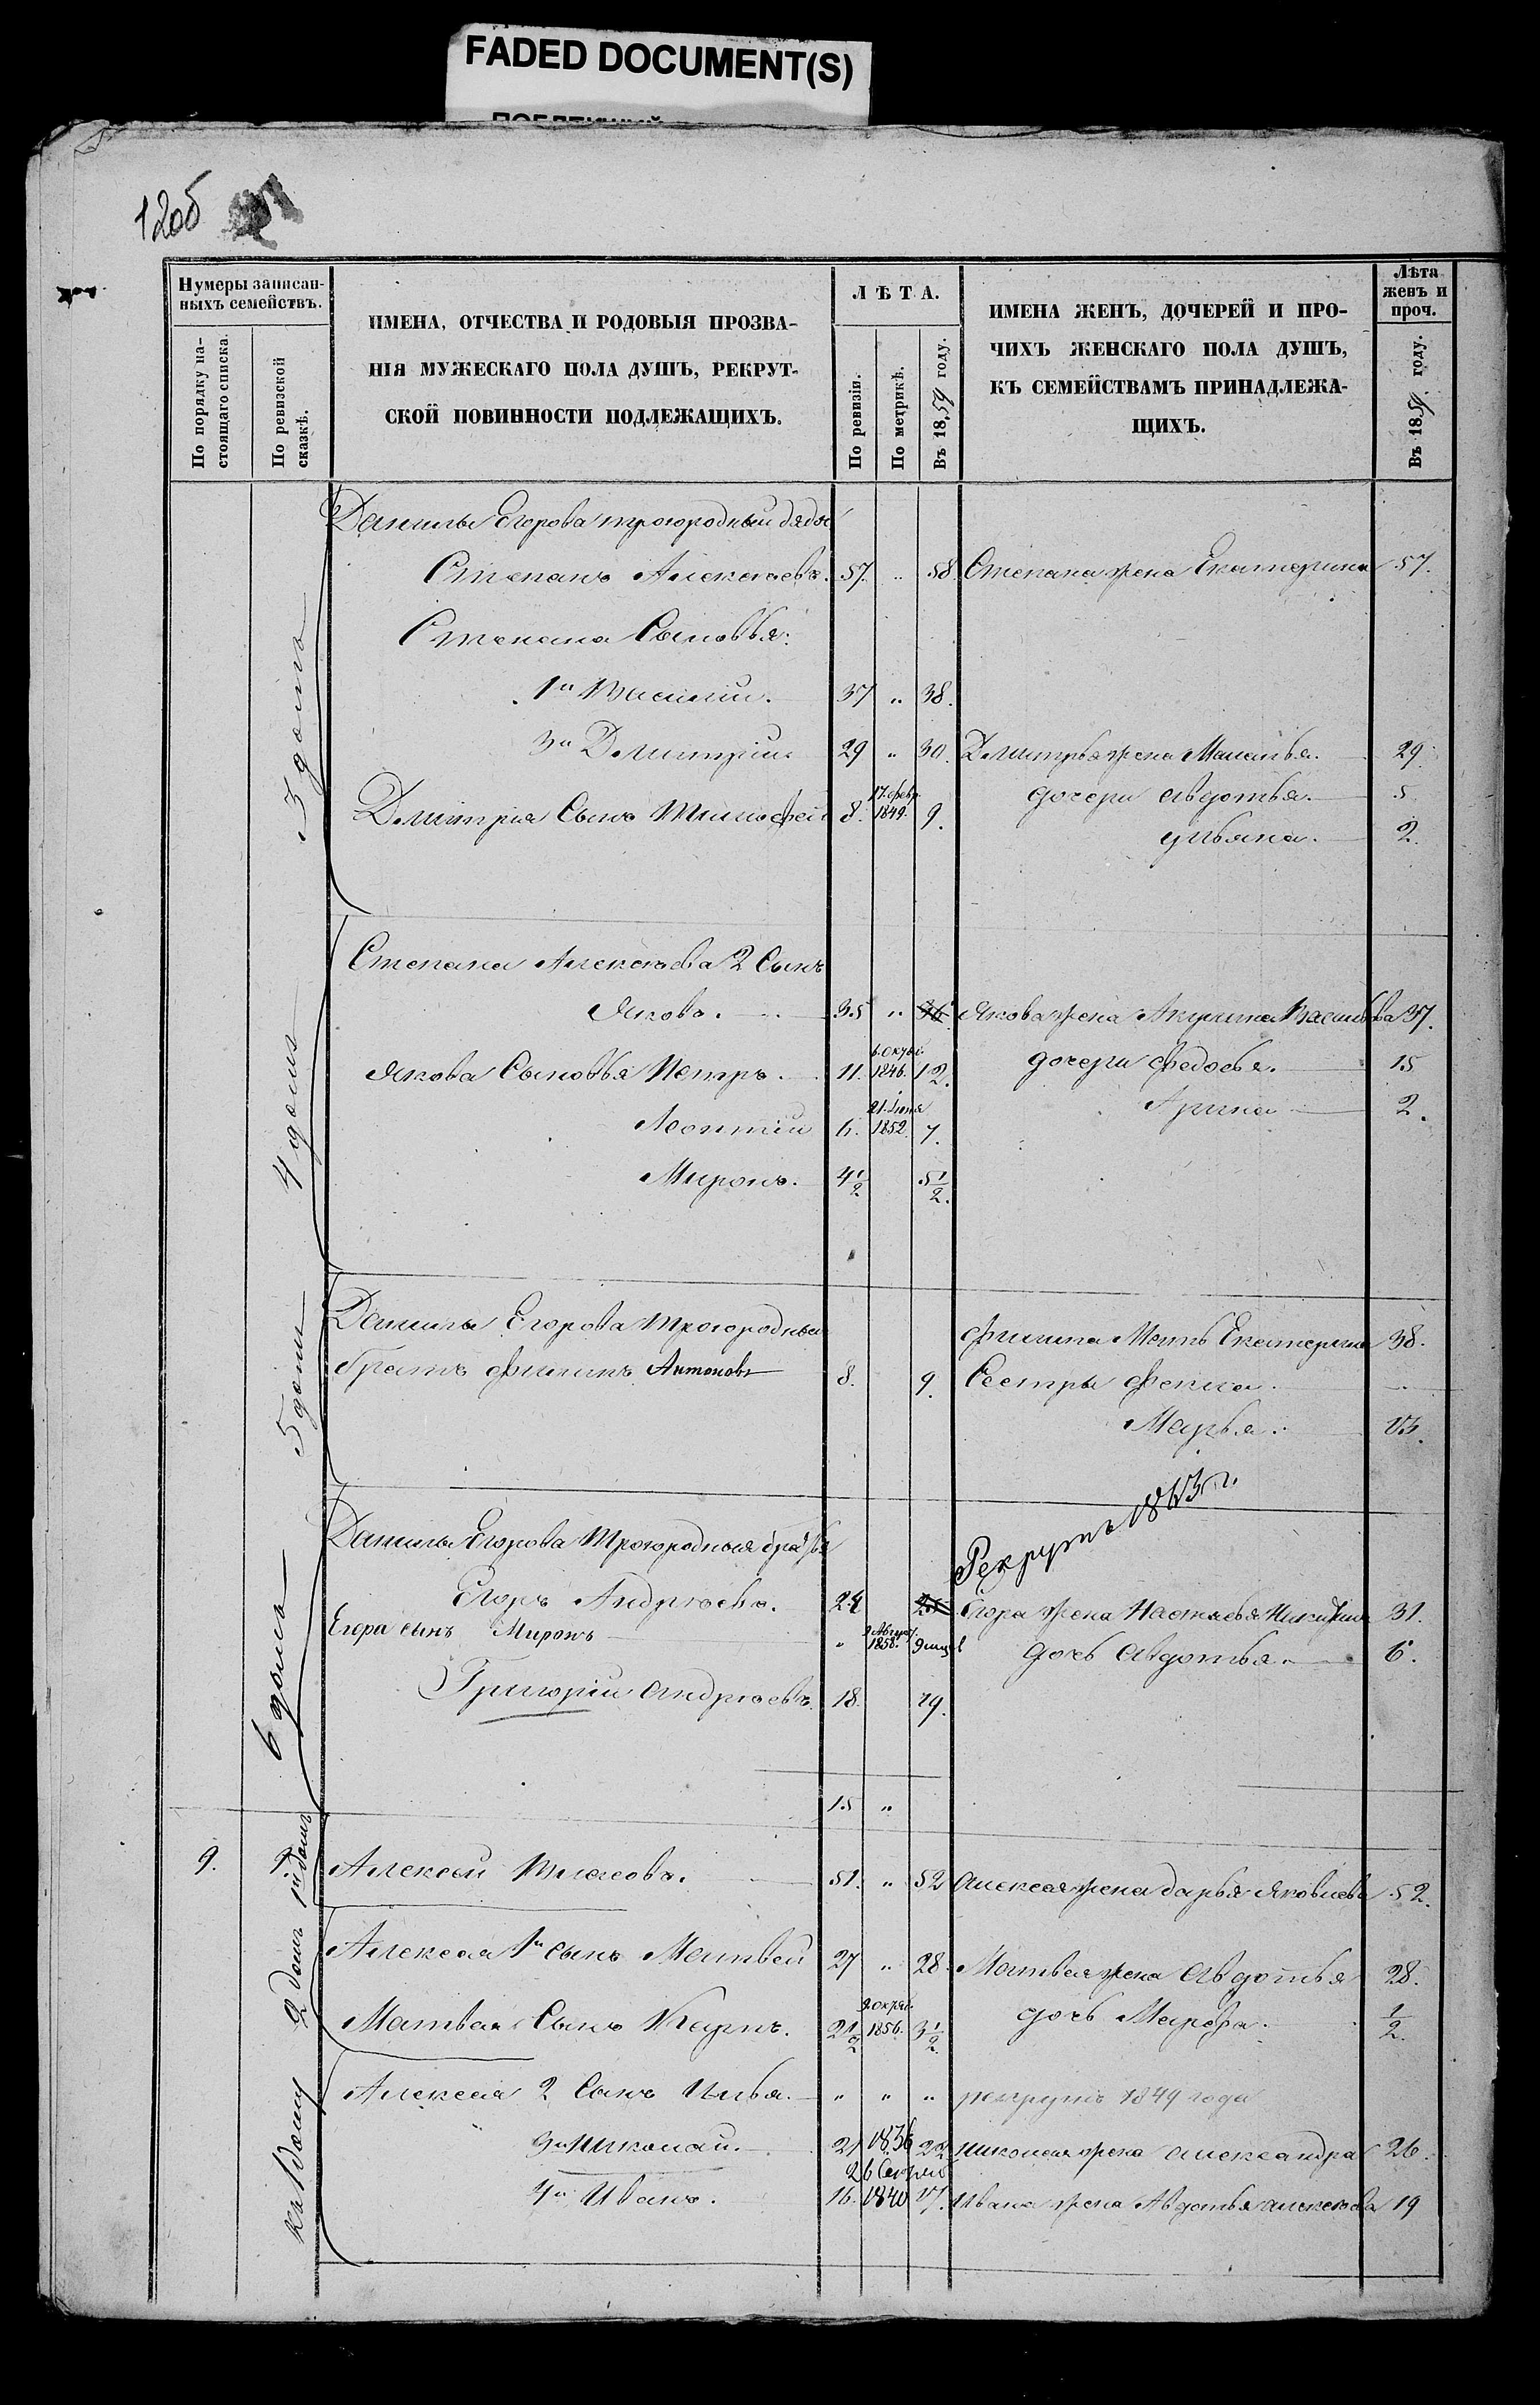 FADED DOCUMENT(S)
120б
Нумеры записан-
ныхъ семействъ.
По порядку на-
стоящаго списка.
По ревизской
сказкѣ.
ИМЕНА, ОТЧЕСТВА И РОДОВЫЯ ПРОЗВА-
НІЯ МУЖЕСКАГО ПОЛА ДУШЪ, РЕКРУТ-
СКОЙ ПОВИННОСТИ ПОДЛЕЖАЩИХЪ.
ЛѢТА.
По ревизіи.
По метрикѣ.
Въ 1859 году.
ИМЕНА ЖЕНЪ, ДОЧЕРЕЙ И ПРО-
ЧИХЪ ЖЕНСКАГО ПОЛА ДУШЪ,
КЪ СЕМЕЙСТВАМЪ ПРИНАДЛЕЖА-
ЩИХЪ.
Лѣта
женъ и
проч.
Въ 1859 году.
3 домъ
Данилы Егорова троюродный дядя
Степанъ Алексѣевъ. 57. " 58. Степана жена Екатерина 57.
Степана Сыновья:
1й Василій. 37 " 38.
3й Дмитрій. 29 " 30. Дмитрья жена Маланья. 29.
Дмитрія Сынъ Тимофей 8. 17. февр. 1849. 9. дочери Авдотья. 5
ульяна. 2.
4 домъ
Степана Алексѣева 2 Сынъ
Яковъ. 35 " 36 Якова жена Акулина Васильева 37.
Якова Сыновья Петръ. 11. 6. Октяб. 1846. 12. дочери Федосья. 15
Леонтій 6. 21. Іюня 1852. 7. Арина 2.
Миронъ. 4 1/2 5 1/2.
5 домъ
Данилы Егорова троюродный
братъ Филипъ Антоновъ 8. 9. Филипа Мать Екатерина 38.
Сестры Фекла. "
Марья. 13.
6 домъ
Рекрутъ 1863 г.
Данилы Егорова троюродныя братья
Егоръ Андреевъ. 24 25 Егора жена Настасья Никитина 31.
Егора сынъ Миронъ " 2 Август. 1858. 9 мцѣв дочь Авдотья. 6.
Григорій Андреевъ 18. 19.
15 "
9. 9. 1й домъ Алексѣй Власовъ. 51. " 52 Алексея жена дарья Яковлева 52.
2 домъ Алексея 1й сынъ Матвей 27 " 28. Матвея жена Авдотья 28.
Матвея Сынъ Карпъ. 2 1/2 9. Октяб. 1856. 3 1/2. дочь Марфа. 1/2.
Алексея 2 Сынъ Илья. " " " рекрутъ 1849 года
3й Николай. 21 1836 22. Николая жена Александра 26.
26 Сентяб
4й Иванъ. 16. 1840 17. Ивана жена Авдотья Алексѣева 19